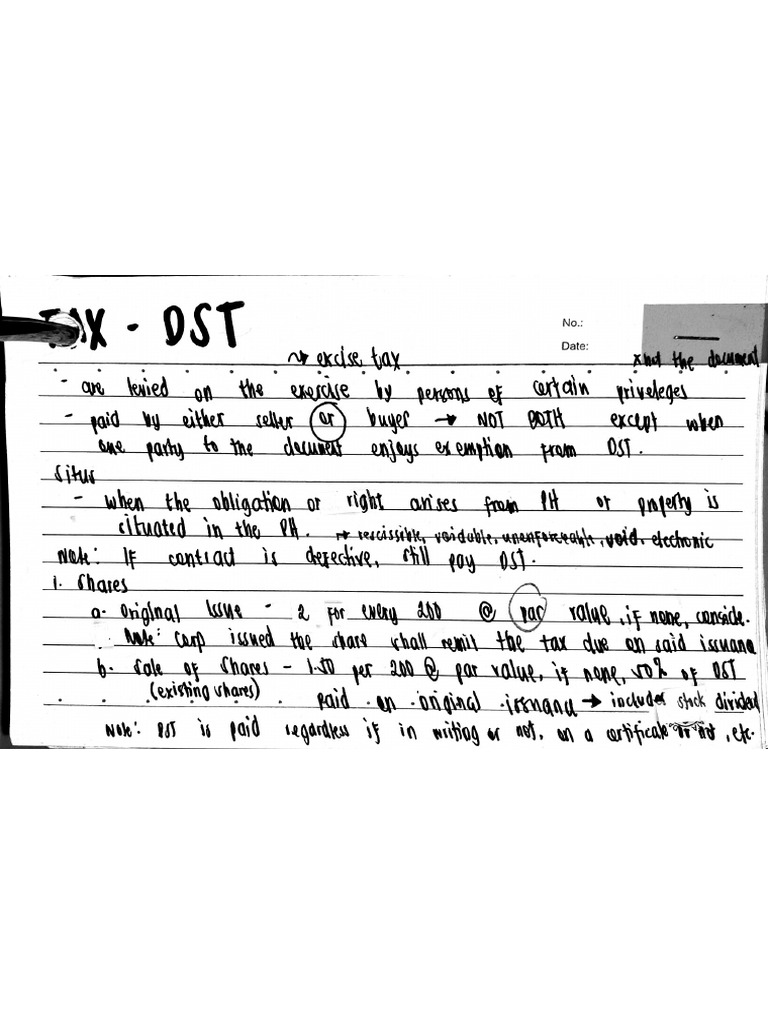 TAX - DST
No.:
Date:
↝ excise tax
x not the document
- are levied on the exercise by persons of certain priveleges
- paid by either seller or buyer → NOT BOTH except when
one party to the document enjoys exemption from DST.
Situs
- when the obligation or right arises from PH or property is
situated in the PH. → rescissible, voidable, unenforceable, void, electronic
Note: If contract is defective, still pay DST.
1. Shares
a. Original Issue - 2 for every 200 @ par value, if none, conside.
Note: Corp issued the share shall remit the tax due on said issuance
b. Sale of Shares - 1.50 per 200 @ par value, if none, 50% of DST
(existing shares) paid on original issuance → includes stock dividend
Note: DST is paid regardless if in writing or not, on a certificate or not, etc.